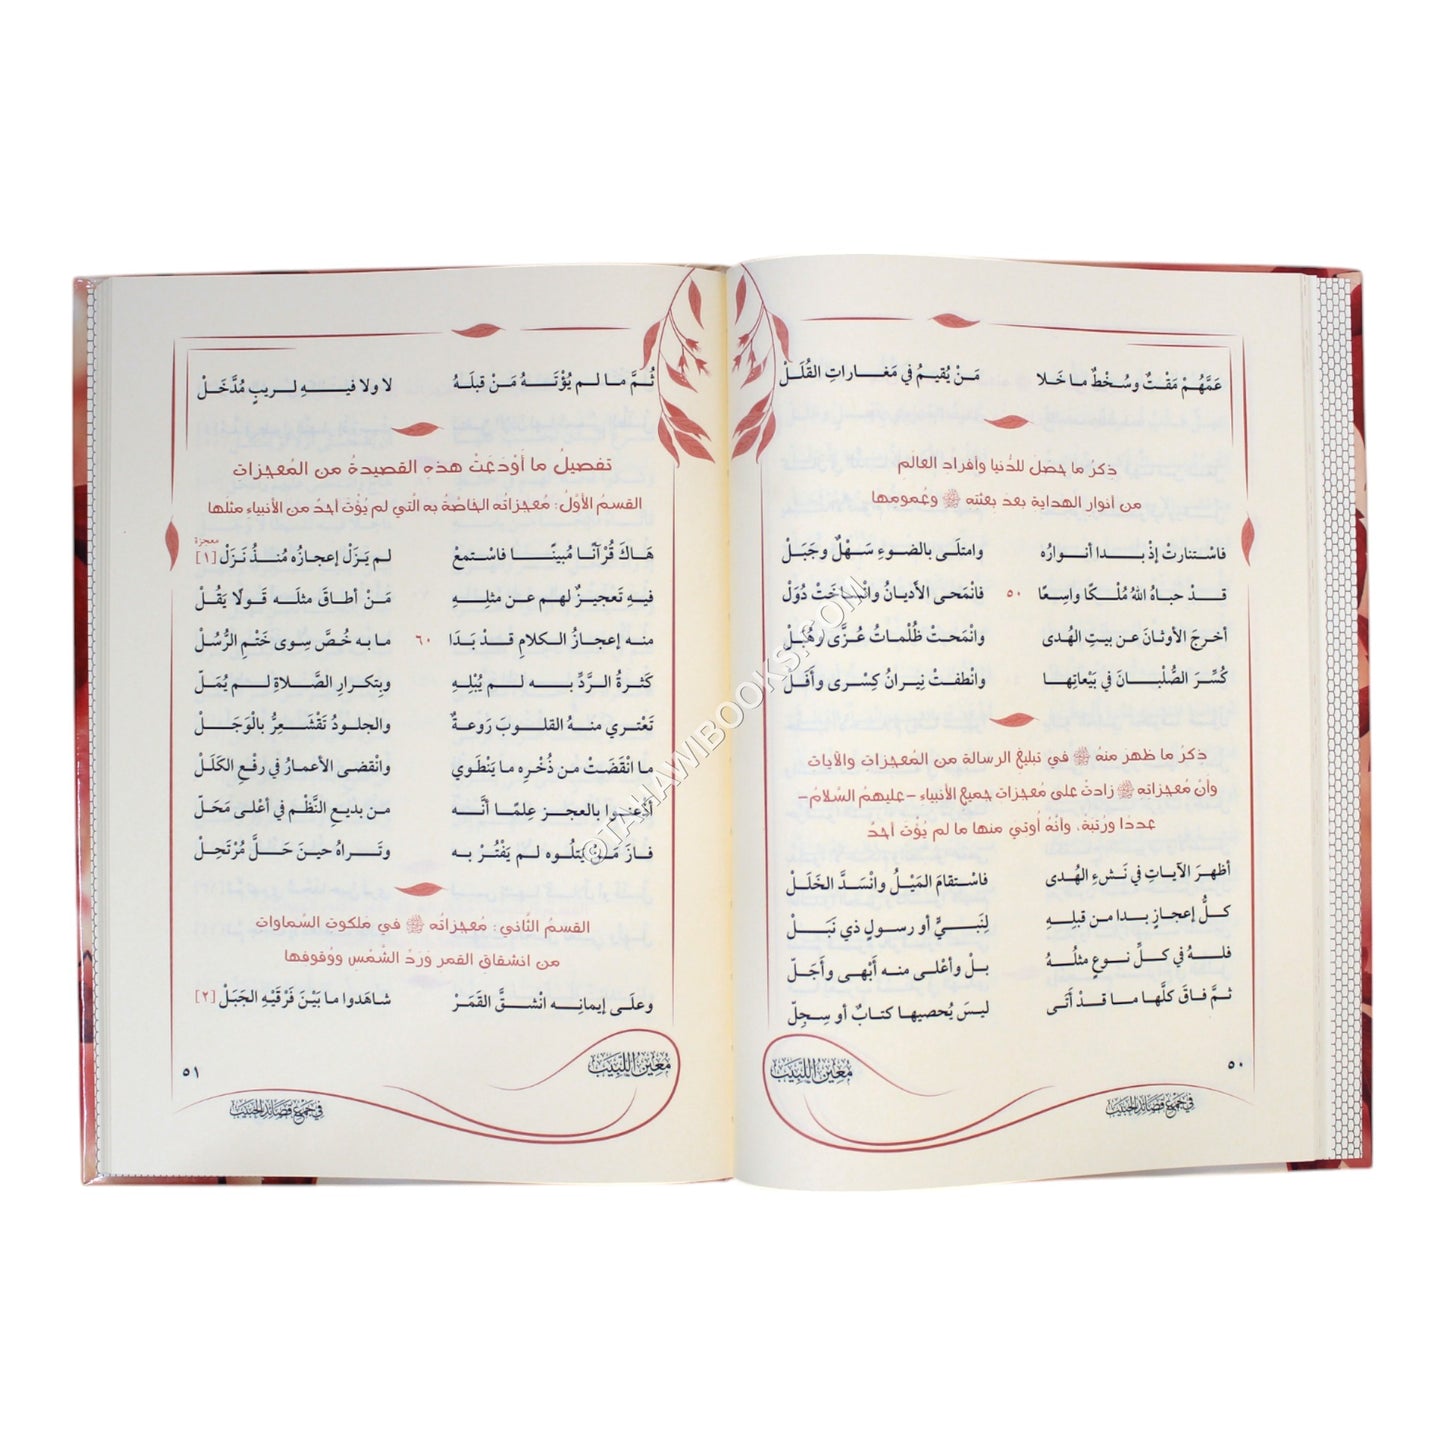 عَمَّهُمْ مَقْتٌ وسُخْطٌ ما خَلا مَنْ يُقيمُ في مَغاراتِ القُلَلْ
ذكرُ ما حصَلَ للدُّنيا وأفرادِ العالَمِ
من أنوارِ الهدايةِ بعدَ بعثتِه ﷺ وعُمومِها
فاسْتنارتْ إذْ بدا أنوارُه وامتلَى بالضوءِ سَهْلٌ وجَبَلْ
قدْ حباهُ اللهُ مُلْكًا واسِعًا ٥٠ فانْمَحى الأديانُ وانْساخَتْ دُوَلْ
أخرجَ الأوثانَ عن بيتِ الهُدى وانْمَحتْ ظُلْماتُ عُزَّى وهُبَلْ
كُسِّرَ الصُّلْبانَ في بَيْعاتِها وانْطفتْ نِيرانُ كِسْرى وأَفَلْ
ذكرُ ما ظهرَ منهُ ﷺ في تبليغِ الرسالةِ من المُعجزاتِ والآياتِ
وأنَّ مُعجزاتِه ﷺ زادتْ على مُعجزاتِ جميعِ الأنبياءِ –عليهمُ السَّلامُ–
عددًا ورُتبةً، وأنَّهُ أوتيَ منها ما لم يُؤْتَ أحدٌ
أظهرَ الآياتِ في نَشءِ الهُدى فاسْتقامَ المَيْلُ وانْسَدَّ الخَلَلْ
كلُّ إعجازٍ بدا من قبلِهِ لِنَبيٍّ أو رسولٍ ذي نَبَلْ
فلهُ في كلِّ نوعٍ مثلُهُ بلْ وأعْلى منه أَبْهى وأَجَلّ
ثمَّ فاقَ كلَّها ما قدْ أَتَى ليسَ يُحصيها كتابٌ أو سِجِلّ
مُعِينُ اللَّبِيبِ
في جَمْعِ قَصَائِدِ الحَبِيبِ
٥٠
ثُمَّ ما لم يُؤْتَهُ مَنْ قبلَهُ لا ولا فيهِ لريبٍ مُدَّخَلْ
تفصيلُ ما أَوْدَعَتْ هذه القصيدةُ من المُعجزاتِ
القسمُ الأوَّلُ: مُعجزاتُه الخاصَّةُ به الَّتي لم يُؤْتَ أحدٌ من الأنبياءِ مثلَها
هَاكَ قُرْآنًا مُبينًا فاسْتمعْ لم يَزَلْ إعجازُه مُنذُ نَزَلْ معجزة [١]
فيهِ تَعجيزٌ لهم عن مثلِهِ مَنْ أطاقَ مثلَه قَولًا يَقُلْ
منه إعجازُ الكلامِ قدْ بَدَا ٦٠ ما به خُصَّ سِوى خَتْمِ الرُّسُلْ
كَثرةُ الرَّدِّ به لم يُبْلِهِ وبِتكرارِ الصَّلاةِ لم يُمَلّ
تَعْتري منهُ القلوبَ رَوعةٌ والجلودُ تَقْشَعِرُّ بالْوَجَلْ
ما انْقَضَتْ من ذُخْرِه ما يَنْطَوي وانْقضى الأعمارُ في رفْعِ الكَلَلْ
أذْعنوا بالعجزِ عِلمًا أنَّه من بديعِ النَّظْمِ في أعْلى مَحَلّ
فازَ مَنْ يتلُوه لم يَفْتُرْ به وتراهُ حينَ حَلَّ مُرْتَحِلْ
القسمُ الثَّاني: مُعجزاتُه ﷺ في ملكوتِ السَّماواتِ
من انشقاقِ القمرِ ورَدِّ الشَّمسِ ووُقوفِها
وعلَى إيمانِه انْشقَّ القَمَرْ شاهَدوا ما بَيْنَ فَرْقَيْهِ الجَبَلْ [٢]
مُعِينُ اللَّبِيبِ
في جَمْعِ قَصَائِدِ الحَبِيبِ
٥١
©TAHAWIBOOKS.COM